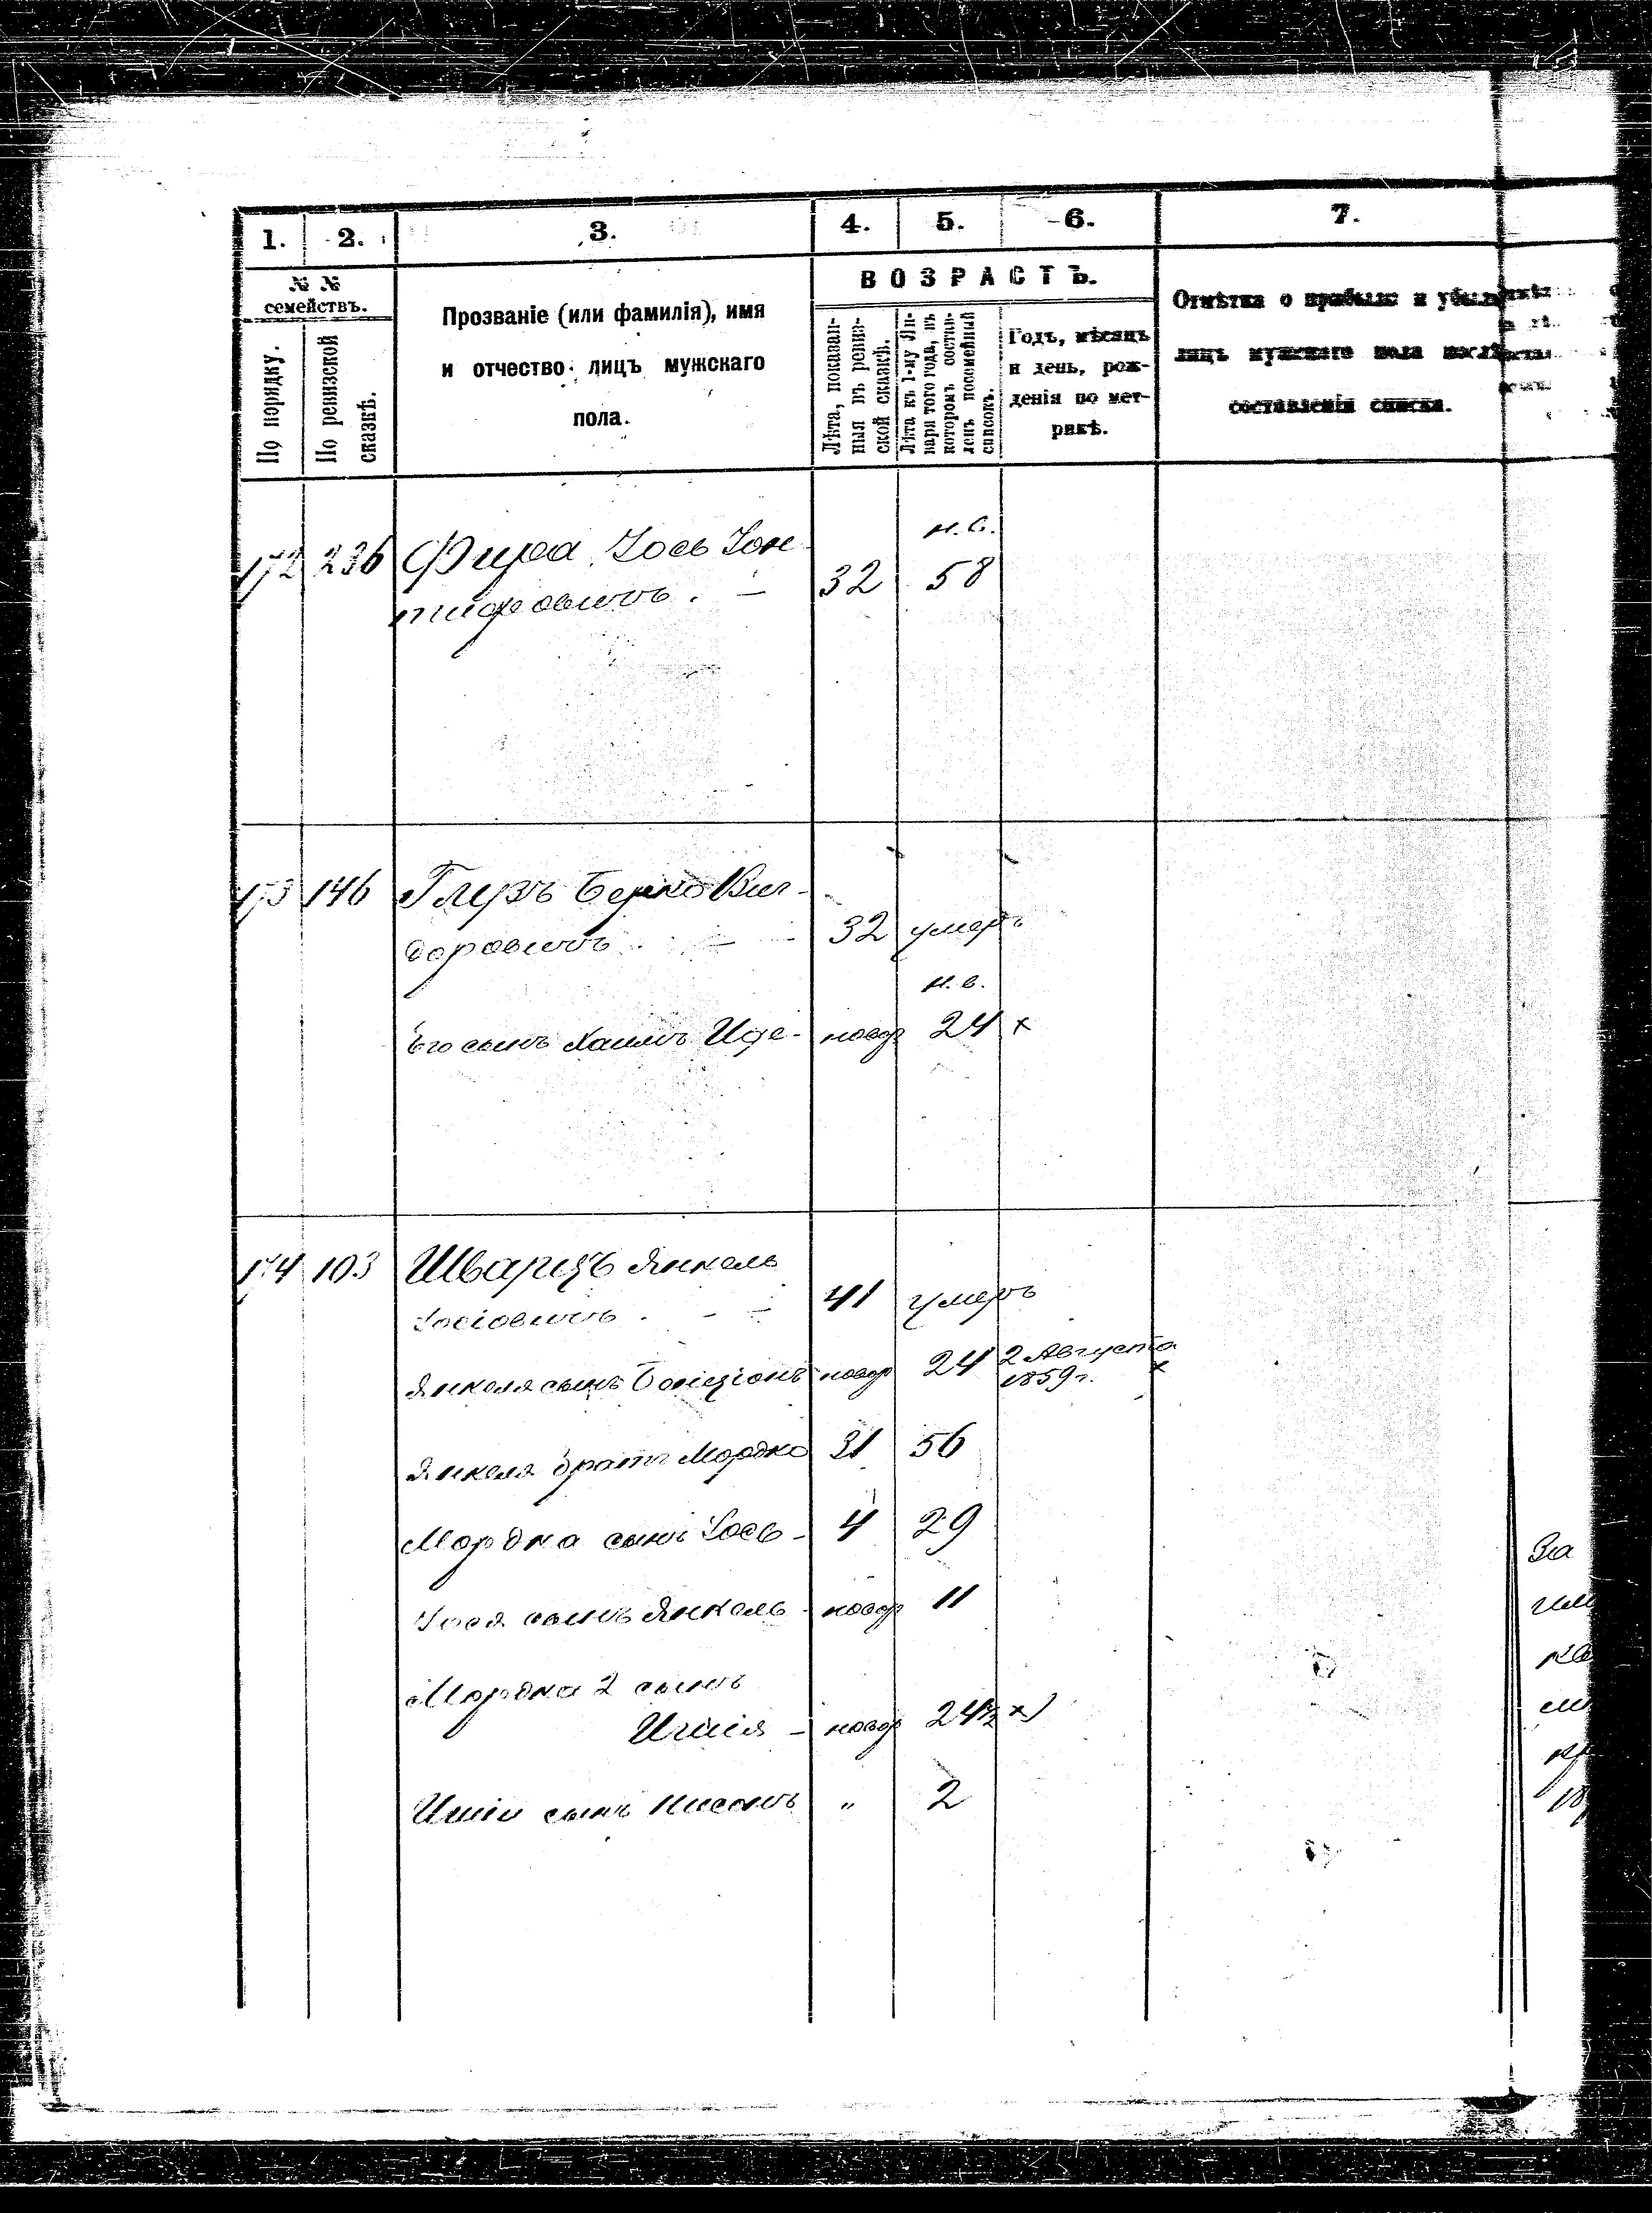 1. 2. 3. 4. 5. 6. 7.
№ №
семействъ.
По порядку.
По ревизской
сказкѣ.
Прозваніе (или фамилія), имя
и отчество лицъ мужскаго
пола.
ВОЗРАСТЪ.
Лѣта, показан-
ныя въ ревиз-
ской сказкѣ.
Лѣта къ 1-му Ян-
варя того года, въ
которомъ состав-
ленъ посемейный
списокъ.
Годъ, мѣсяцъ
и день, рож-
денія по мет-
рикѣ.
Отмѣтка о прибыли и убыли
лицъ мужскаго пола послѣ
составленія списка.
н.с.
172 236 Фира Іось Іон-
тифовичъ. — 32 58
173 146 Глузъ Берко Виг-
доровичъ. — 32 умеръ
н.в.
Его сынъ Хаимъ Иде- новор 24 x
174 103 Шварцъ Янкель
Іосіовичъ. — 41 умеръ
Янкеля сынъ Бенціонъ новор 24 2 Августа
1859 г. x
Янкеля братъ Мордко 31 56
Мордка сынъ Іось - 4 29
Іося сынъ Янкель - новор 11
Мордка 2 сынъ
Ишія - новор 24½ x)
Ишіи сынъ Нисонъ „ 2
За